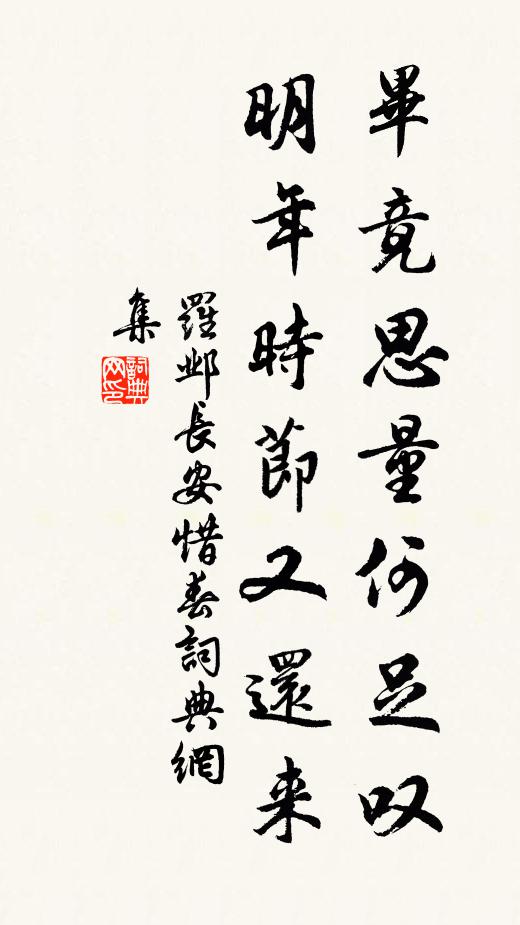 畢竟思量何足叹
明年時節又還来
羅邺長安惜春詞典網
集
詞典网印